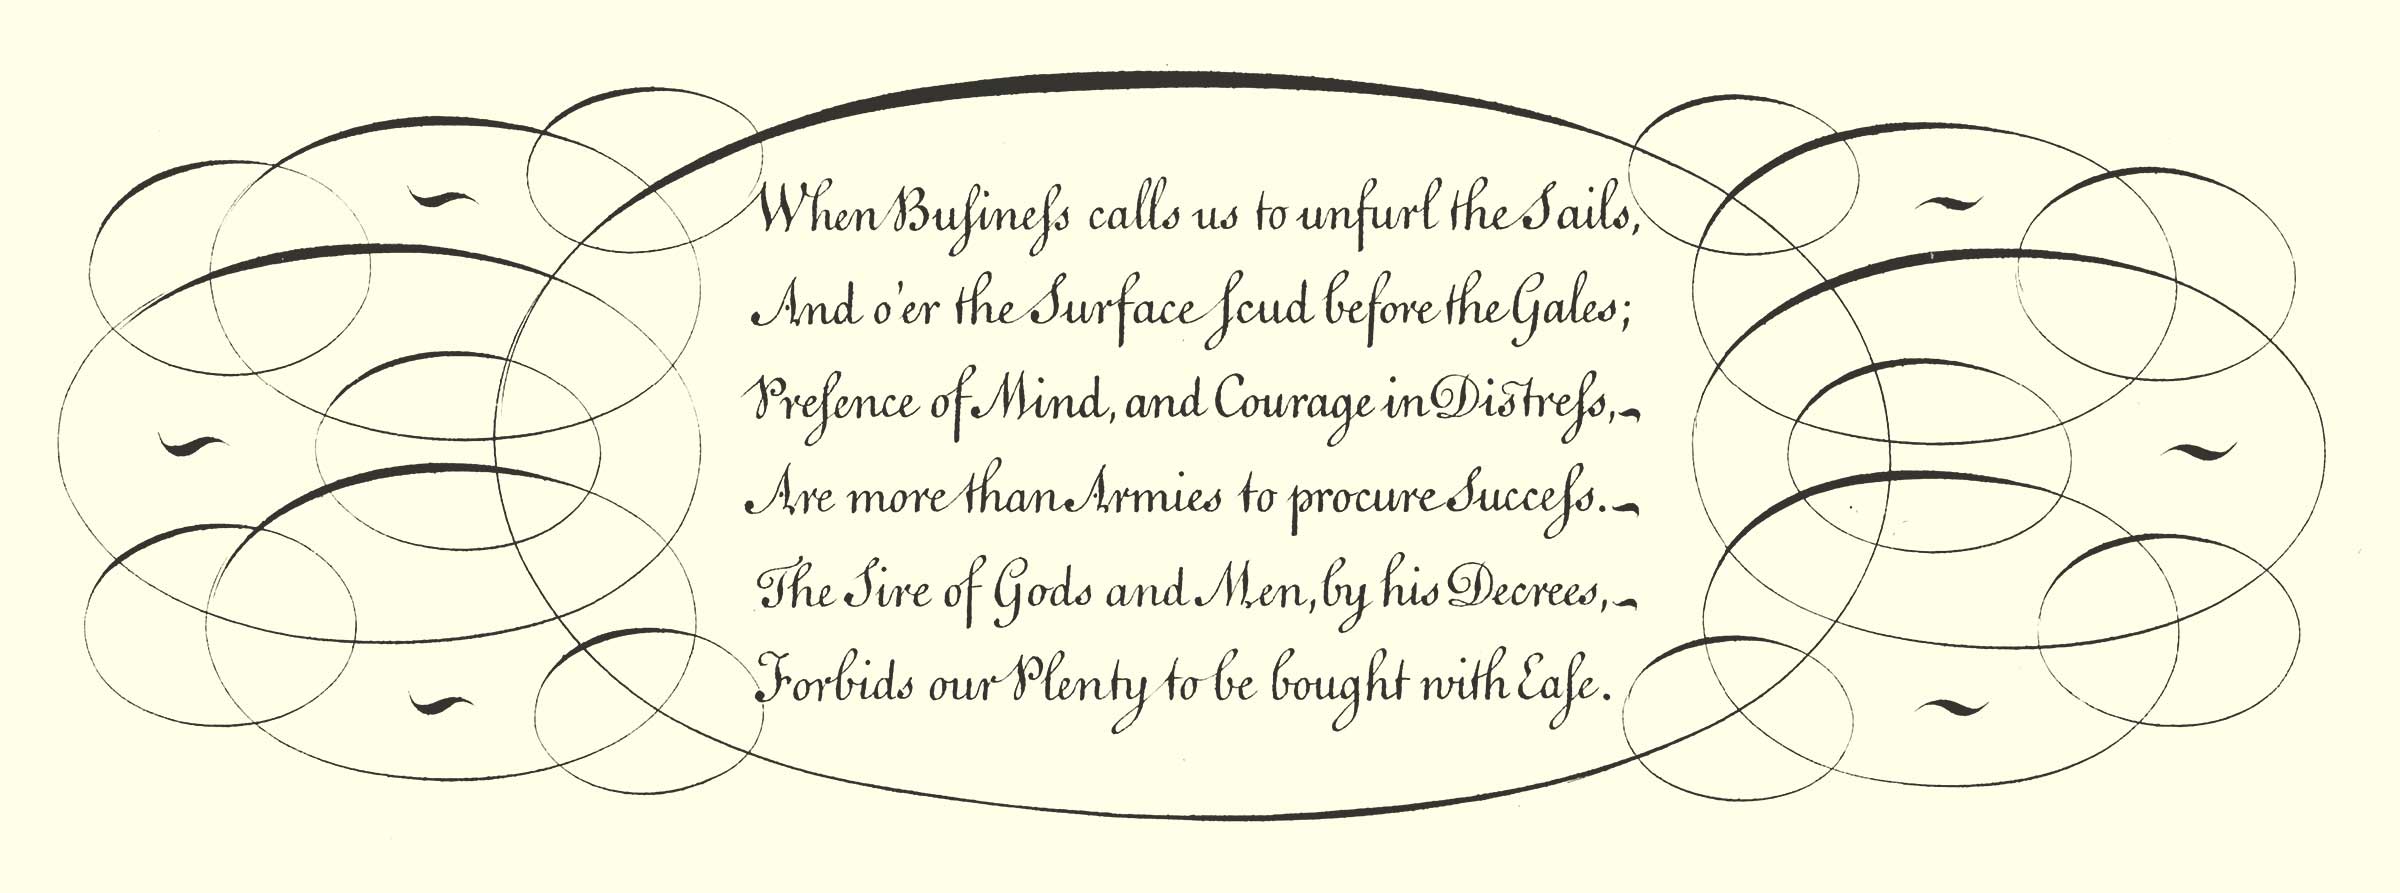 When Buſineſs calls us to unfurl the Sails,
And o'er the Surface ſcud before the Gales;
Preſence of Mind, and Courage in Diſtreſs,~
Are more than Armies to procure Succeſs.~
The Sire of Gods and Men, by his Decrees,~
Forbids our Plenty to be bought with Eaſe.